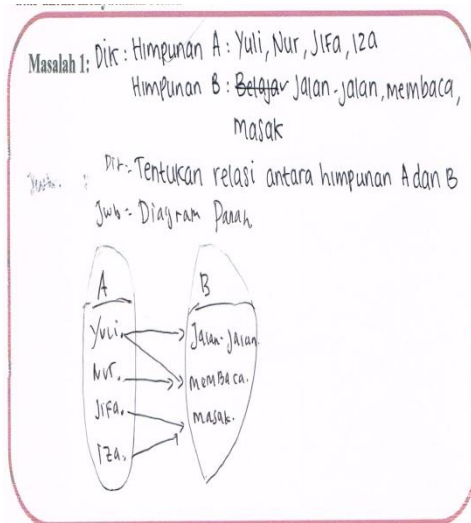 Masalah 1: Dik : Himpunan A : Yuli, Nur, Jifa, Iza
Himpunan B : Belajar Jalan-jalan, membaca,
masak
Dit : Tentukan relasi antara himpunan A dan B
Jwb : Diagram Panah
A B
Yuli. Jalan-Jalan.
Nur. memBaca.
Jifa. masak.
Iza.